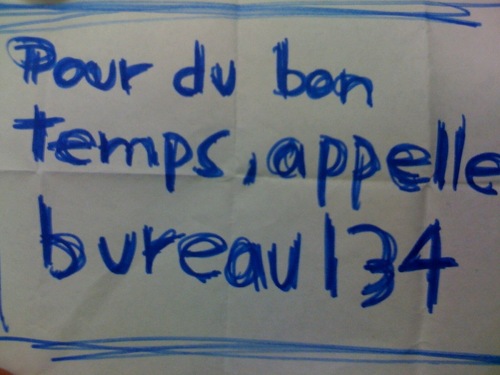 Pour du bon
temps, appelle
bureau 134